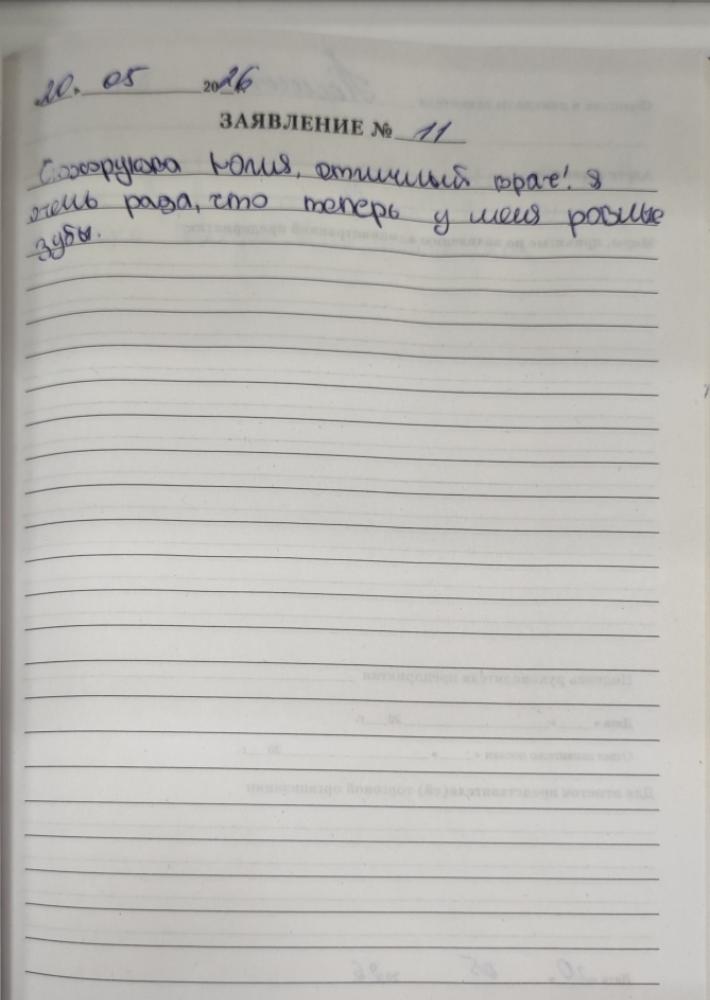 20. 05 2026
ЗАЯВЛЕНИЕ № 11
Сахарукова Юлия, отличный врач! Я
очень рада, что теперь у меня ровные
зубы.